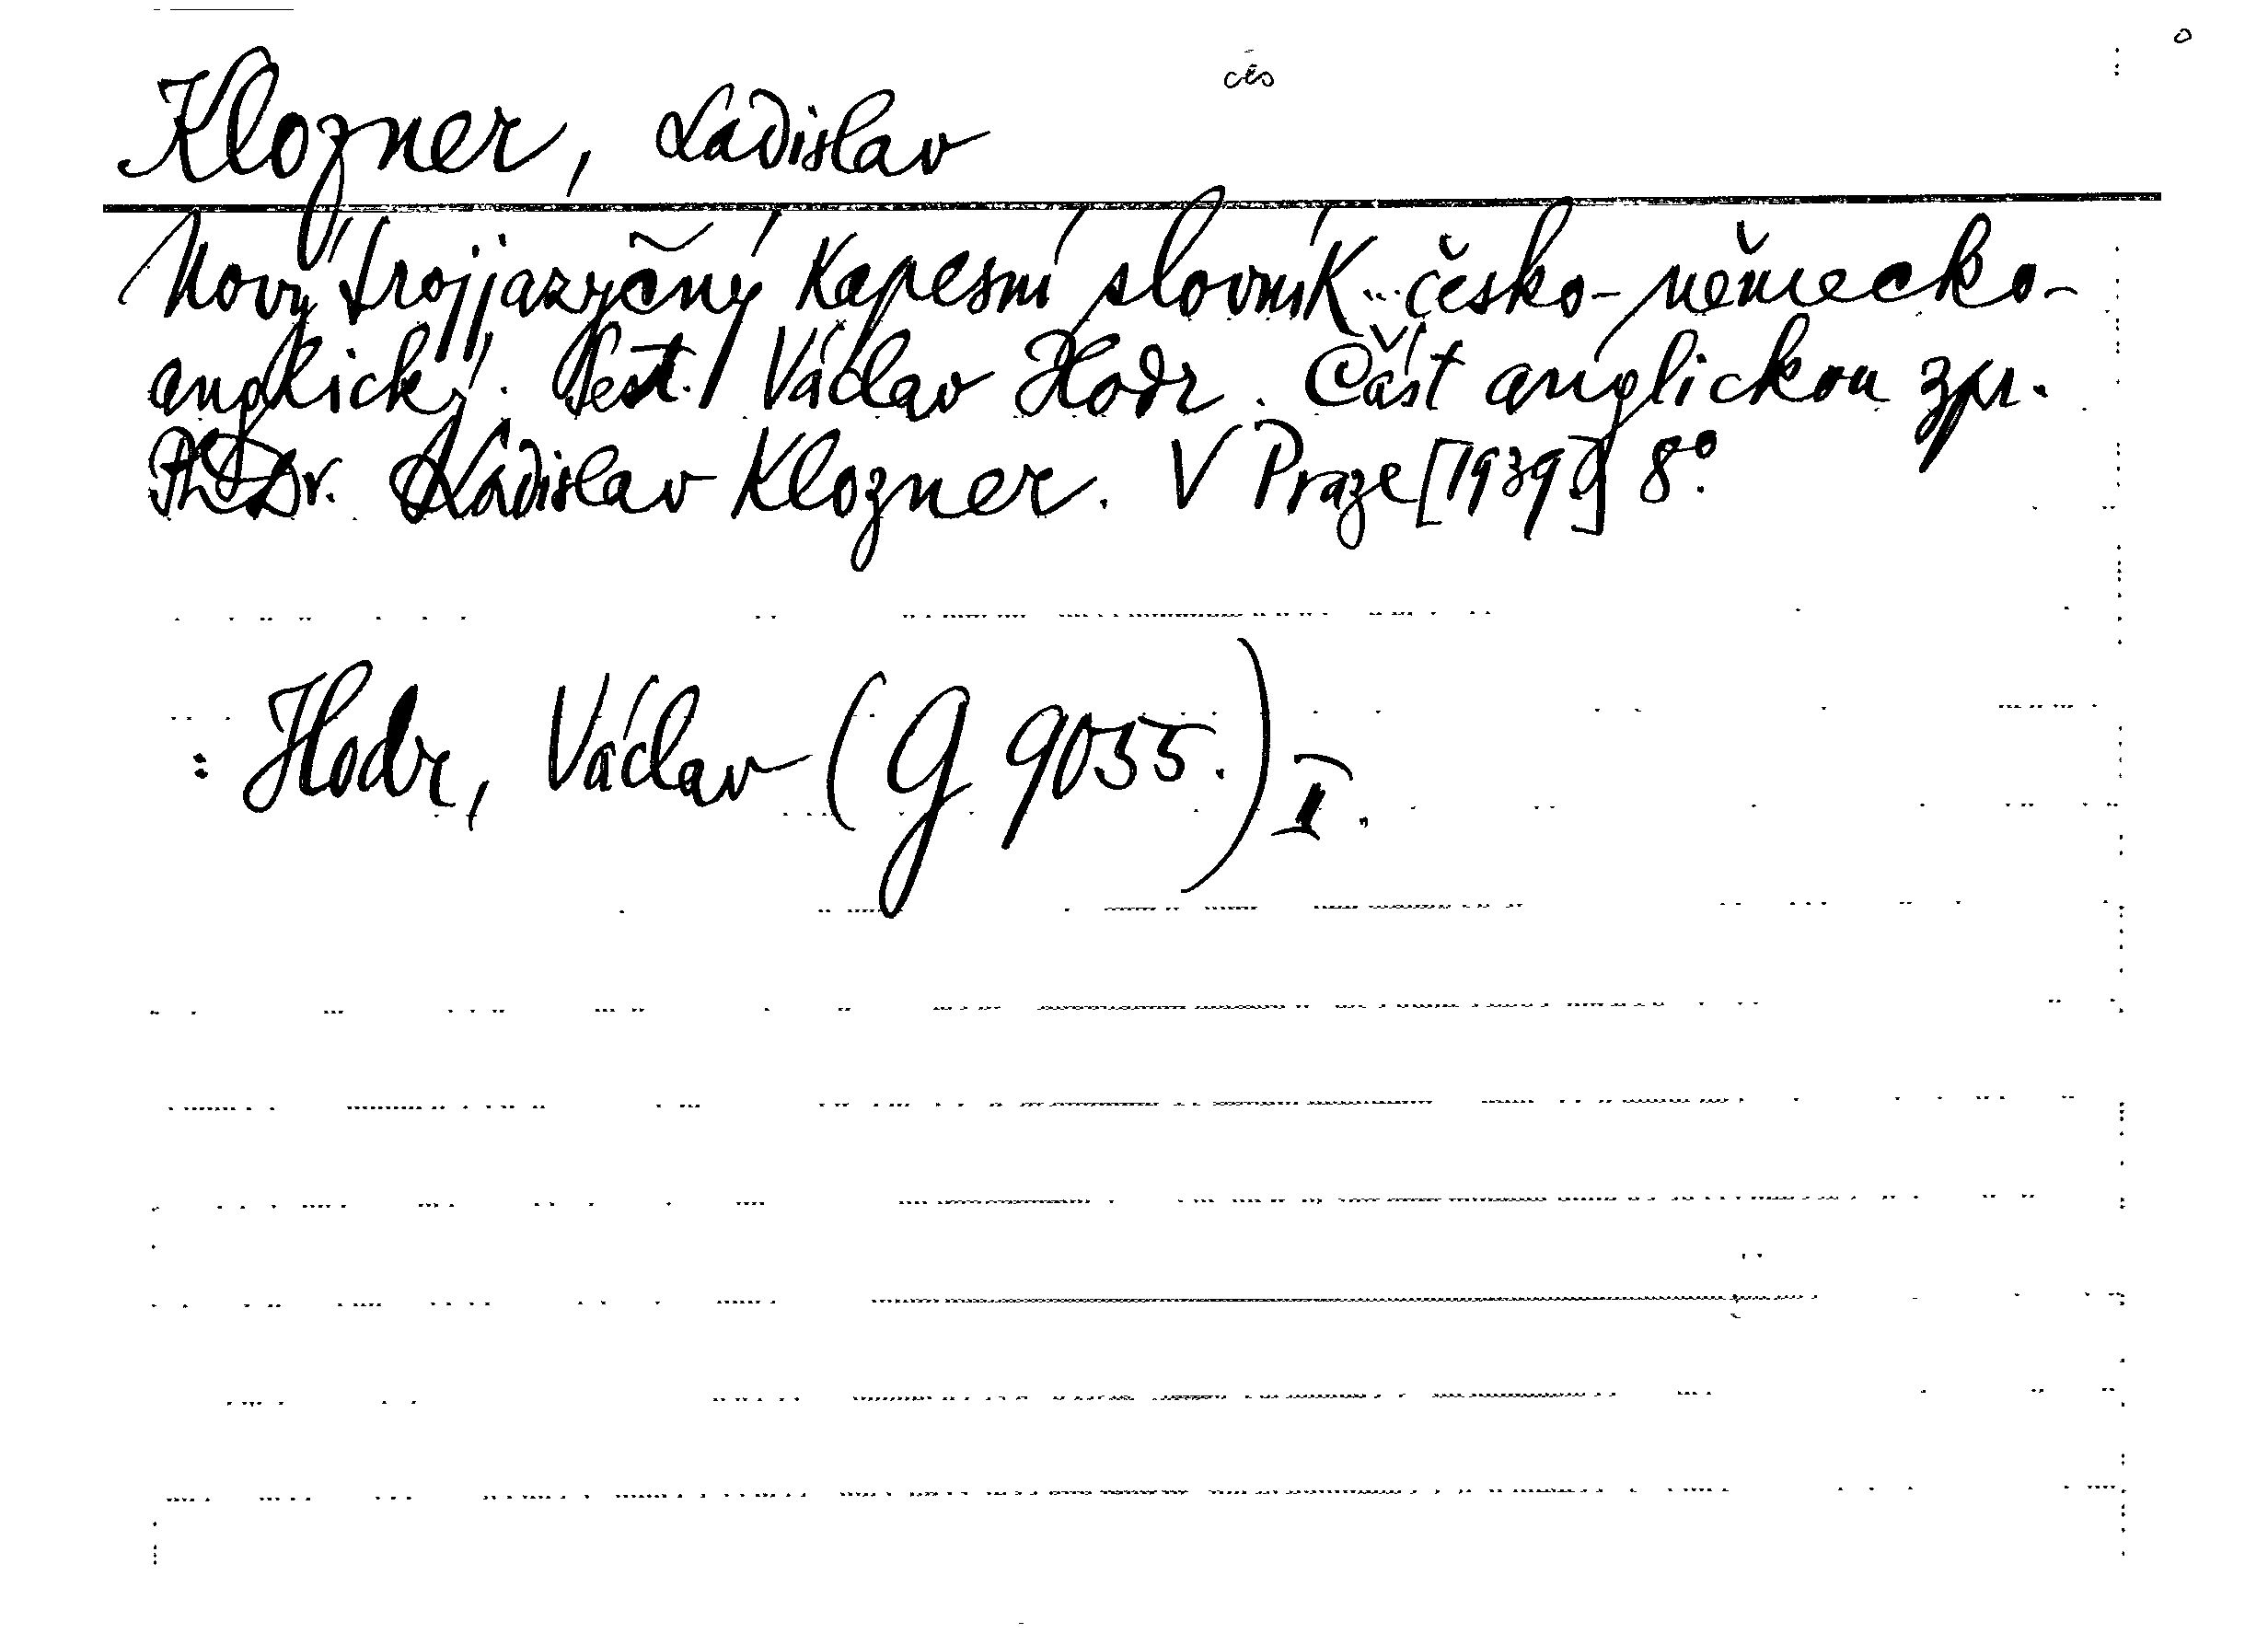 čes
Klozner, Ladislav
Nový trojjazyčný kapesní slovník... česko-německo-
anglický. Sest. Václav Hodr. Část anglickou zpr.
PhDr. Ladislav Klozner. V Praze [1939] 8°.
: Hodr, Václav (G 9055.) I.